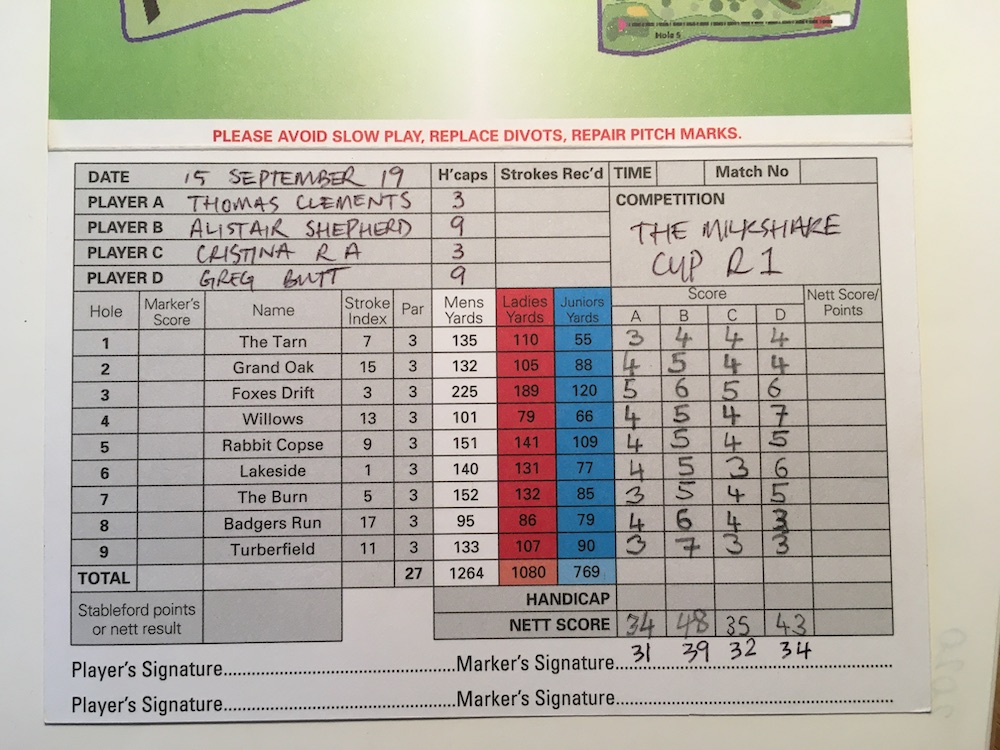 Hole 5
PLEASE AVOID SLOW PLAY, REPLACE DIVOTS, REPAIR PITCH MARKS.
DATE 15 SEPTEMBER 19 H'caps Strokes Rec'd TIME Match No
PLAYER A THOMAS CLEMENTS 3 COMPETITION
PLAYER B ALISTAIR SHEPHERD 9 THE MILKSHAKE
PLAYER C CRISTINA R A 3 CUP R1
PLAYER D GREG BUTT 9
Hole Marker's Score Name Stroke Index Par Mens Yards Ladies Yards Juniors Yards Score Nett Score/ Points
A B C D
1 The Tarn 7 3 135 110 55 3 4 4 4
2 Grand Oak 15 3 132 105 88 4 5 4 4
3 Foxes Drift 3 3 225 189 120 5 6 5 6
4 Willows 13 3 101 79 66 4 5 4 7
5 Rabbit Copse 9 3 151 141 109 4 5 4 5
6 Lakeside 1 3 140 131 77 4 5 3 6
7 The Burn 5 3 152 132 85 3 5 4 5
8 Badgers Run 17 3 95 86 79 4 6 4 3
9 Turberfield 11 3 133 107 90 3 7 3 3
TOTAL 27 1264 1080 769
Stableford points or nett result HANDICAP
NETT SCORE 34 48 35 43
31 39 32 34
Player's Signature Marker's Signature
Player's Signature Marker's Signature